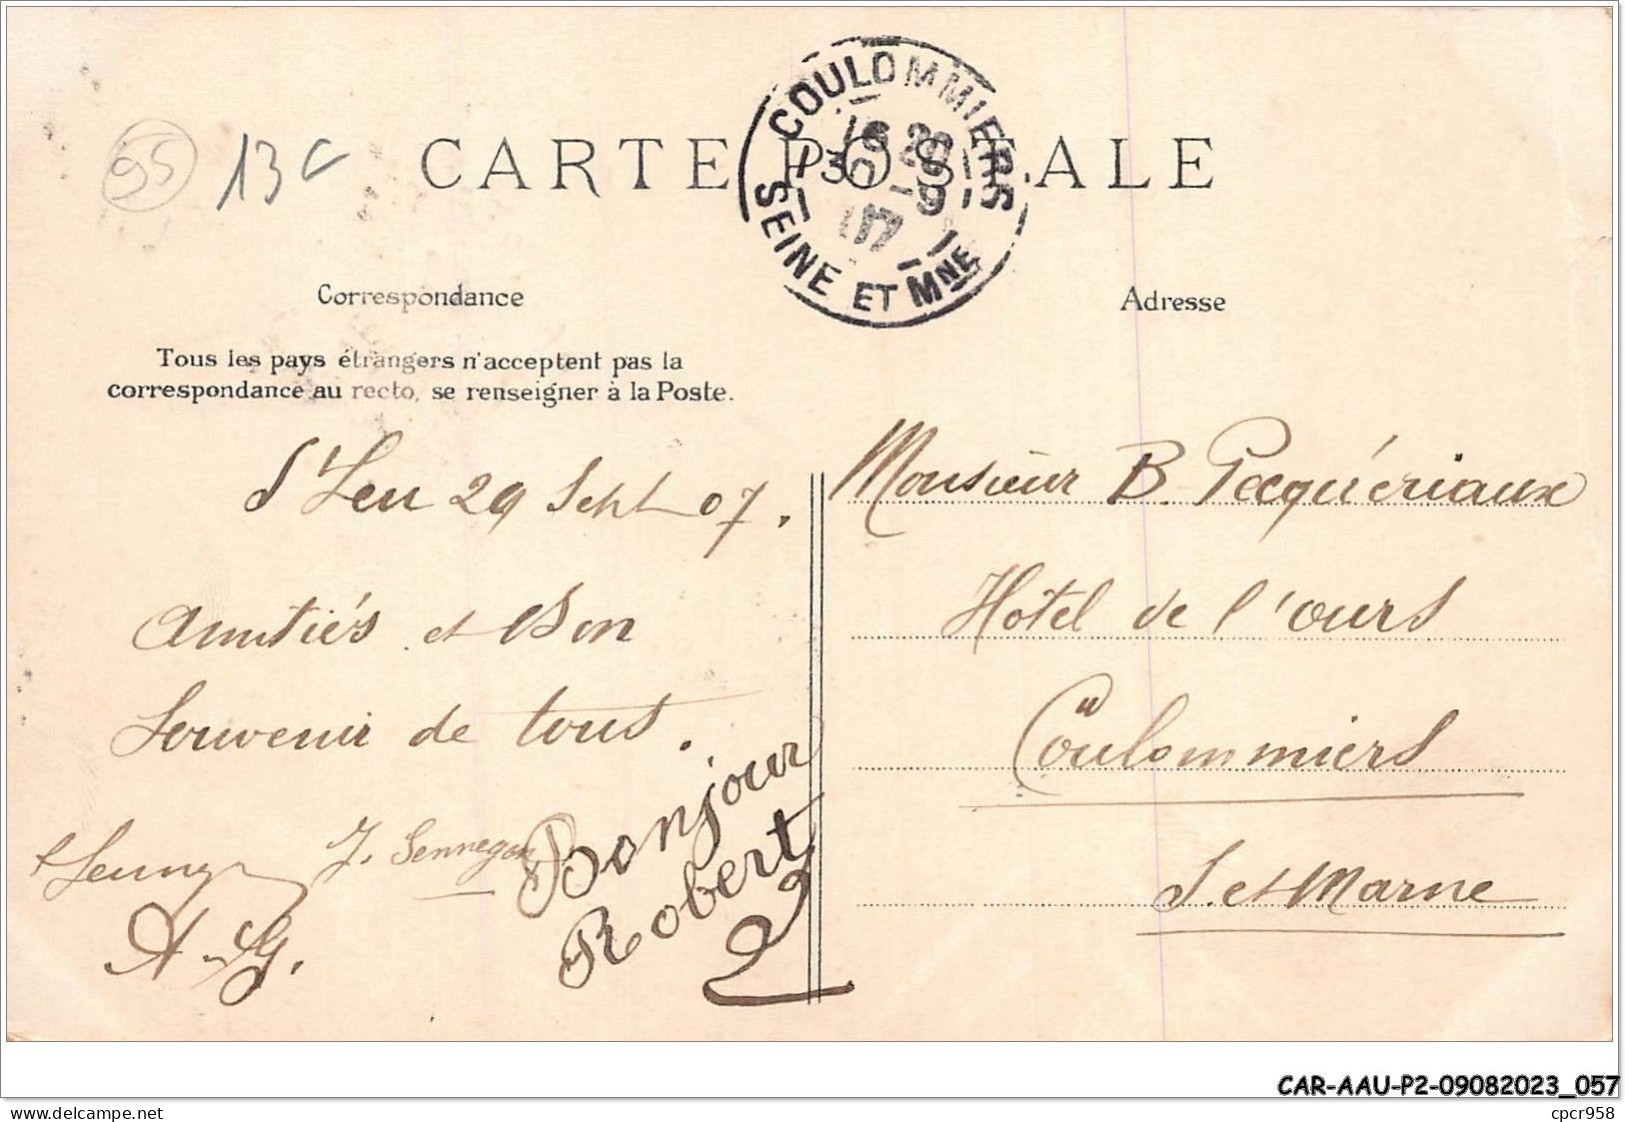 95 13
CARTE POSTALE
COULOMMIERS
30 -9
07
SEINE ET MNE
Correspondance
Adresse
Tous les pays étrangers n'acceptent pas la
correspondance au recto, se renseigner à la Poste.
St Leu 29 Sept 07.
Amitiés et Bon
Souvenir de tous.
J. Sennegon
A. G.
Bonjour
Robert
Monsieur B. Pecquériaux
Hôtel de l'ours
Coulommiers
S. et Marne
CAR-AAU-P2-09082023_057
delcampe.net
cpcr958